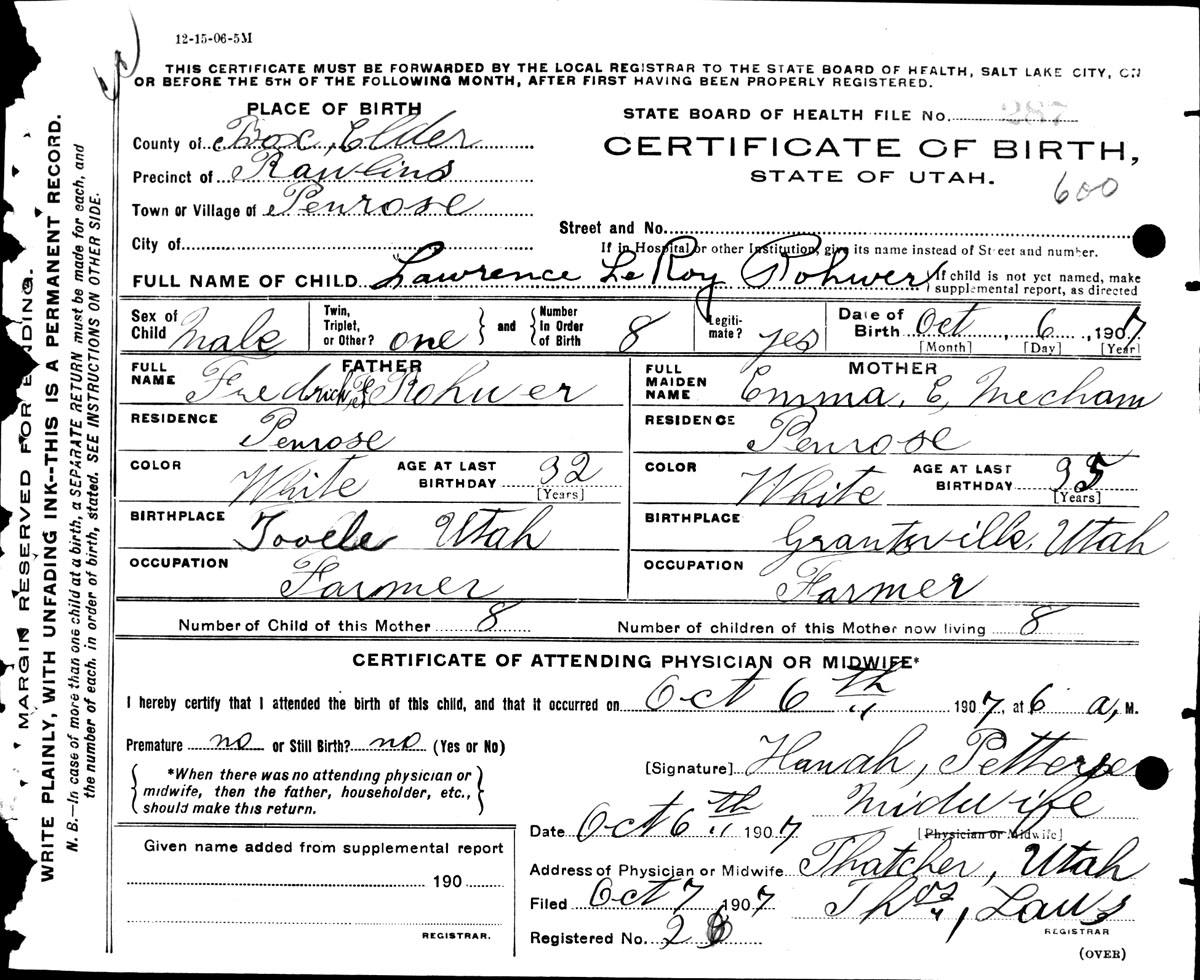 12-15-06-5M
THIS CERTIFICATE MUST BE FORWARDED BY THE LOCAL REGISTRAR TO THE STATE BOARD OF HEALTH, SALT LAKE CITY, ON
OR BEFORE THE 5TH OF THE FOLLOWING MONTH, AFTER FIRST HAVING BEEN PROPERLY REGISTERED.
MARGIN RESERVED FOR
WRITE PLAINLY, WITH UNFADING INK--THIS IS A PERMANENT RECORD.
N. B.—In case of more than one child at a birth, a SEPARATE RETURN must be made for each, and
the number of each, in order of birth, stated. SEE INSTRUCTIONS ON OTHER SIDE.
PLACE OF BIRTH
County of Box Elder
Precinct of Rawlins
Town or Village of Penrose
City of
STATE BOARD OF HEALTH FILE No. 287
CERTIFICATE OF BIRTH,
STATE OF UTAH.
600
Street and No.
If in Hospital or other Institution, give its name instead of Street and number.
FULL NAME OF CHILD Lawrence LeRoy Rohwer
If child is not yet named, make
supplemental report, as directed
Sex of Child Male
Twin, Triplet, or Other? one
and Number In Order of Birth 8
Legiti-mate? yes
Date of Birth Oct 6, 1907
[Month] [Day] [Year]
FATHER
FULL NAME Fredrick Rohwer
RESIDENCE Penrose
COLOR White AGE AT LAST BIRTHDAY 32
[Years]
BIRTHPLACE Tooele Utah
OCCUPATION Farmer
MOTHER
FULL MAIDEN NAME Emma, E, Mecham
RESIDENCE Penrose
COLOR White AGE AT LAST BIRTHDAY 35
[Years]
BIRTHPLACE Grantsville, Utah
OCCUPATION Farmer
Number of Child of this Mother 8
Number of children of this Mother now living 8
CERTIFICATE OF ATTENDING PHYSICIAN OR MIDWIFE*
I hereby certify that I attended the birth of this child, and that it occurred on Oct 6th 1907, at 6 a, M.
Premature no or Still Birth? no (Yes or No)
*When there was no attending physician or
midwife, then the father, householder, etc.,
should make this return.
[Signature] Hanah, Petterse
Midwife
[Physician or Midwife]
Date Oct 6th 1907
Address of Physician or Midwife Thatcher, Utah
Filed Oct 7 1907
Thos, Laws
REGISTRAR
Registered No. 2
(OVER)
Given name added from supplemental report
190
REGISTRAR.